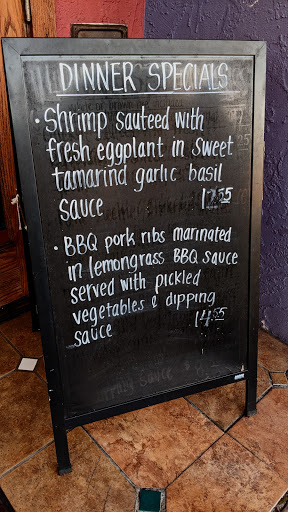 DINNER SPECIALS
• Shrimp sauteed with
fresh eggplant in sweet
tamarind garlic basil
sauce 12.55
• BBQ pork ribs marinated
in lemongrass BBQ sauce
served with pickled
vegetables & dipping
sauce 14.55